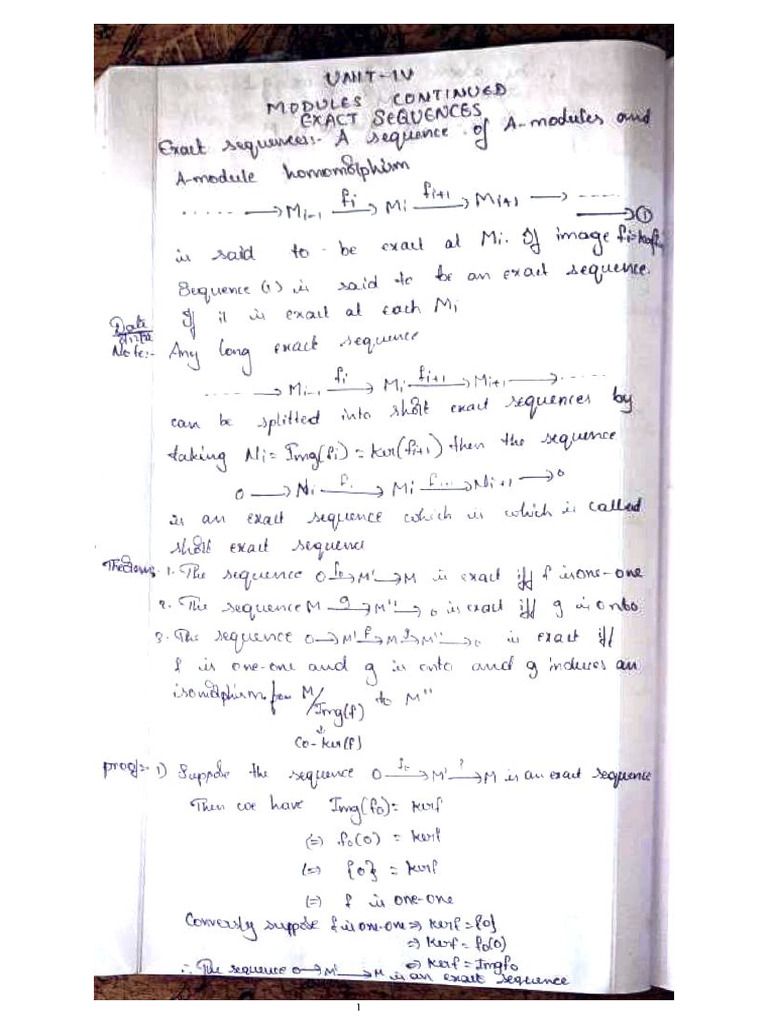 UNIT-IV
MODULES CONTINUED
EXACT SEQUENCES
Exact sequences:- A sequence of A-modules and
A-module homomorphism
...... → Mi-1 —fi→ Mi —fi+1→ Mi+1 → ...... → ①
is said to be exact at Mi. If image fi = kerfi+1
Sequence (1) is said to be an exact sequence.
If it is exact at each Mi
Date
Note:- Any long exact sequence
...... → Mi-1 —fi→ Mi —fi+1→ Mi+1 → ......
can be splitted into short exact sequences by
taking Ni = Img(fi) = ker(fi+1) then the sequence
0 → Ni → Mi → Ni+1 → 0
is an exact sequence which is which is called
short exact sequence
1. The sequence 0 —fo→ M' → M is exact iff f is one-one
2. The sequence M —g→ M'' → 0 is exact iff g is onto
3. The sequence 0 → M' —f→ M —g→ M'' → 0 is exact iff
f is one-one and g is onto and g induces an
isomorphism from M/Img(f) to M''
↓
Co-ker(f)
proof:- 1) Suppose the sequence 0 —fo→ M' —f→ M is an exact sequence
Then we have Img(fo) = kerf
(=) fo(0) = kerf
(=) {0} = kerf
(=) f is one-one
Conversly suppose f is one-one => kerf = {0}
=> kerf = fo(0)
=> kerf = Imgfo
∴ The sequence 0 → M' → M is an exact sequence
1